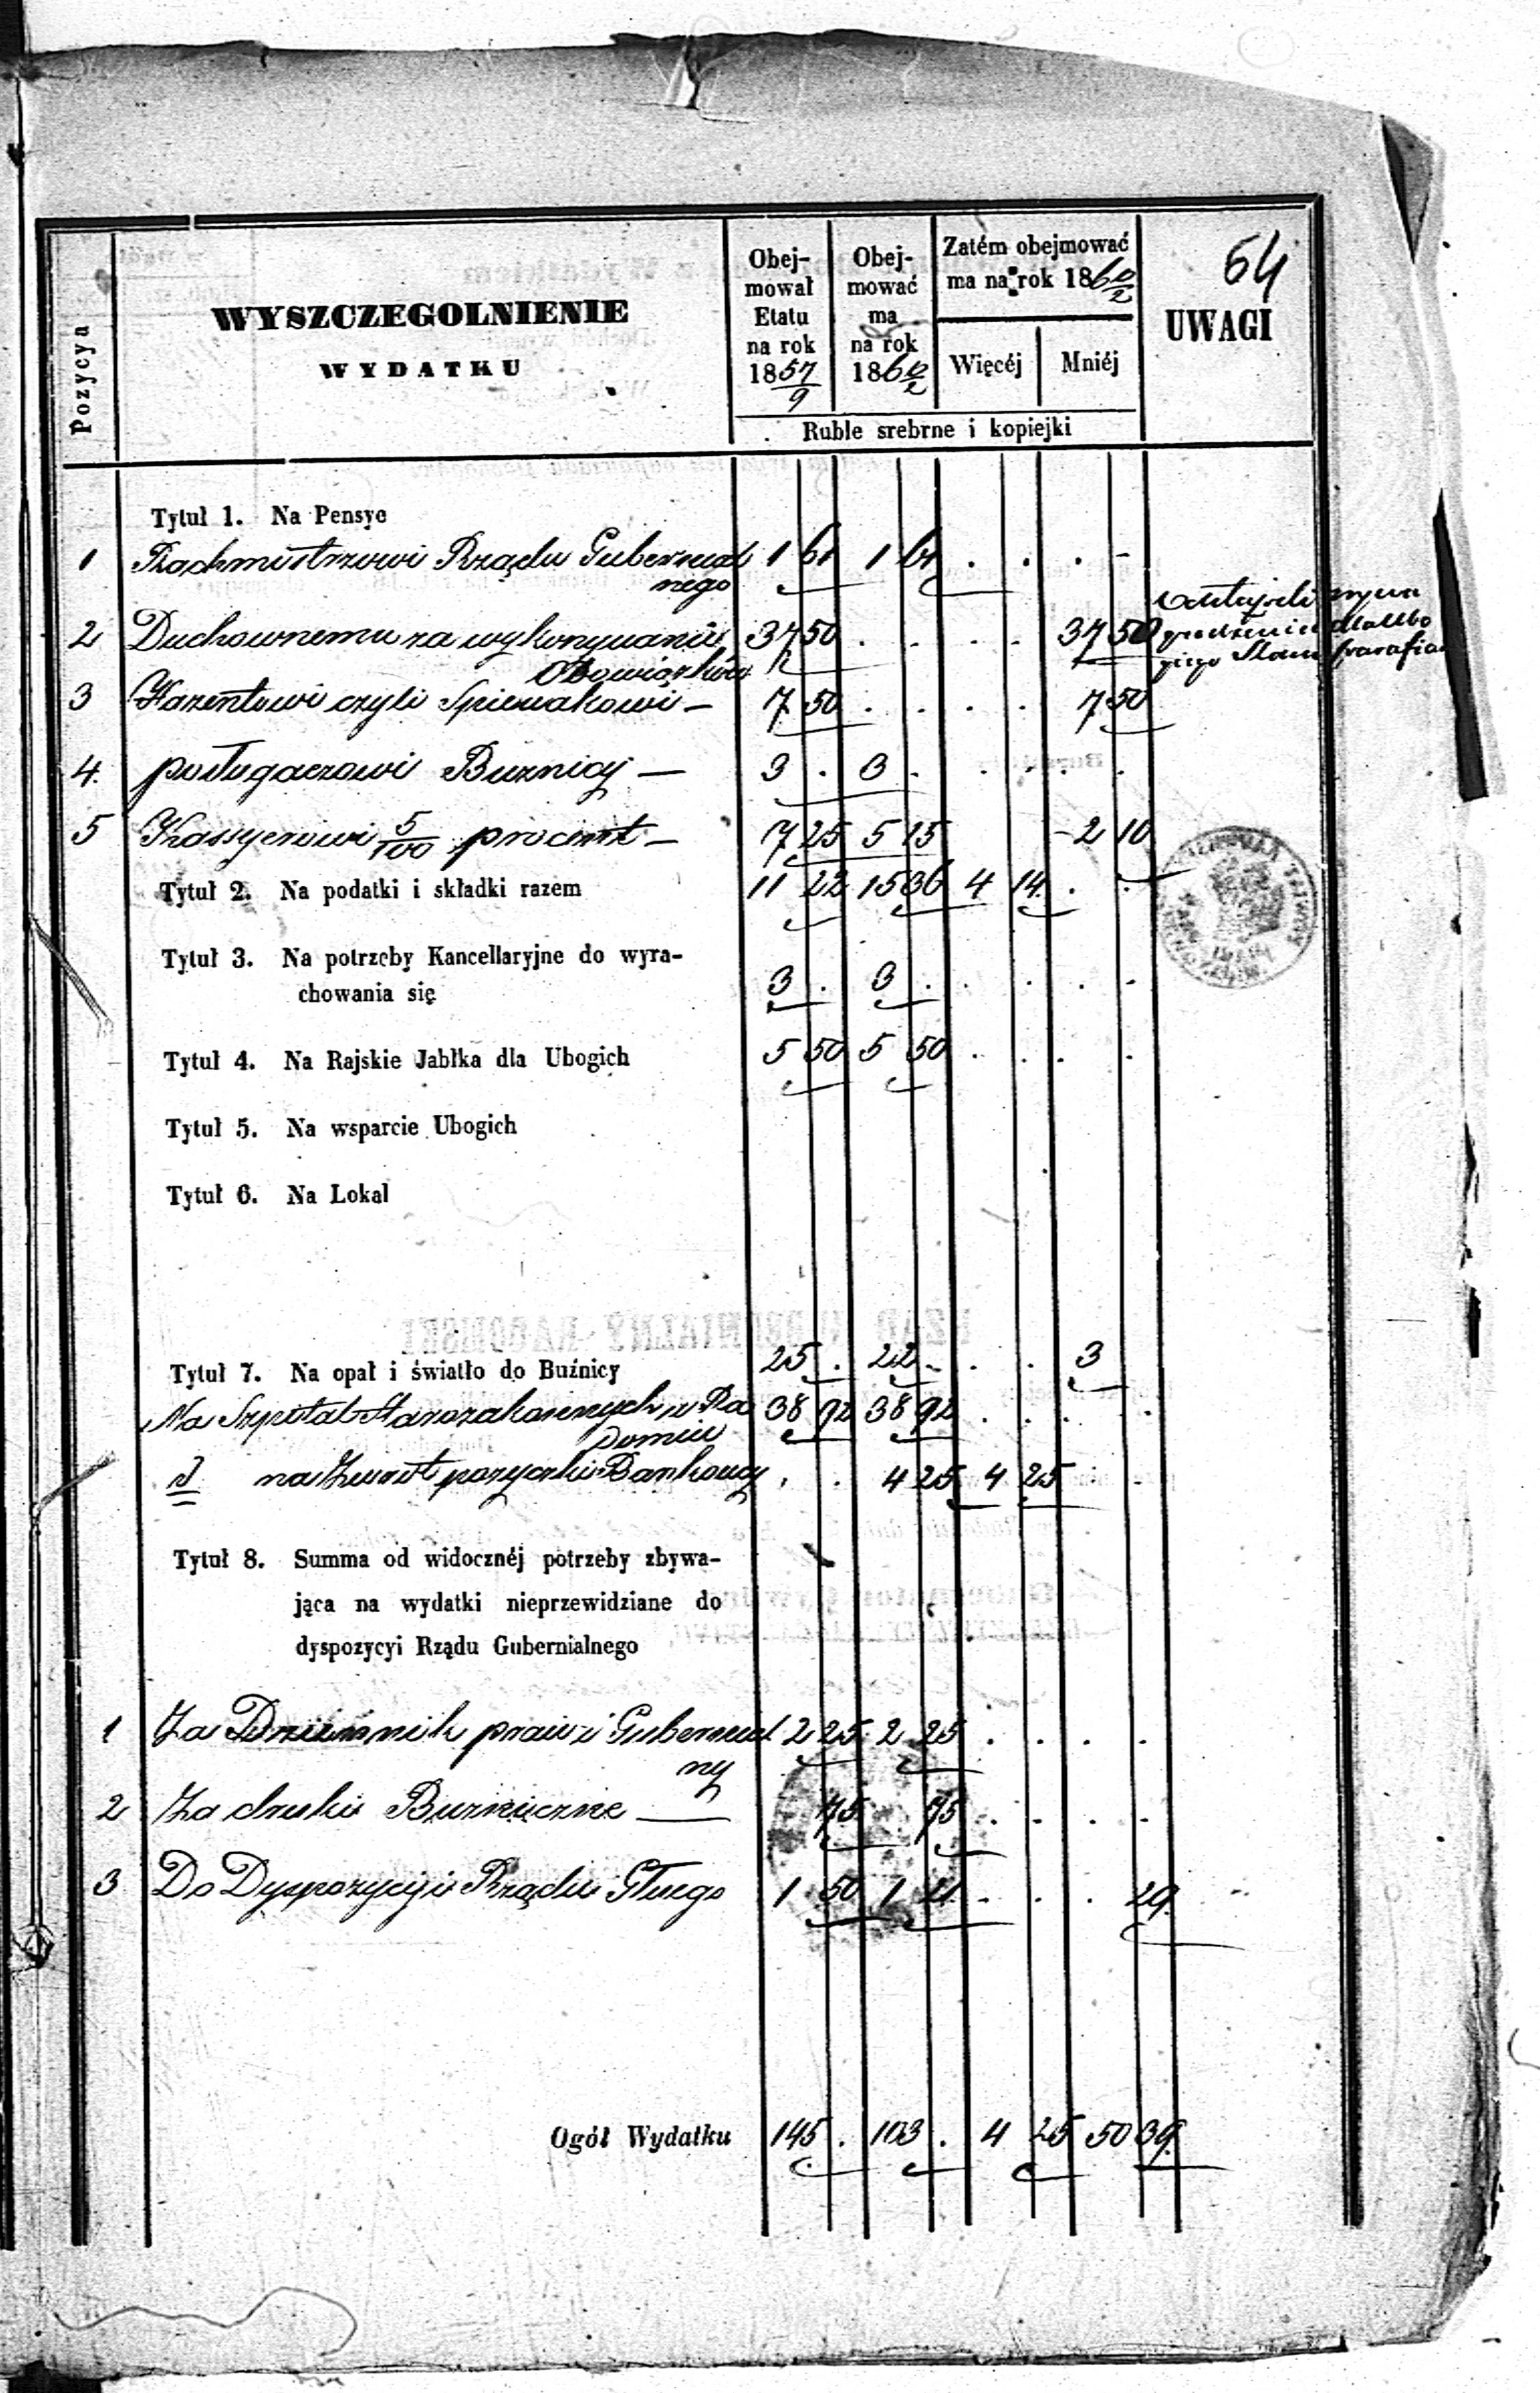 64
Pozycya
WYSZCZEGOLNIENIE
WYDATKU
Obej-
mował
Etatu
na rok
1857/9
Obej-
mować
ma
na rok
1860/2
Zatém obejmować
ma na rok 1860/2
Więcéj Mniéj
Ruble srebrne i kopiejki
UWAGI
Tytuł 1. Na Pensye
1 Rachmistrzowi Rządu Gubernial 1 61 1 61 . . . -
nego
2 Duchownemu za wykonywanie 37 50 . . . . 37 50
Obowiązków
3 Kazentowi czyli Spiewakowi — 7 50 . . . . 7 50
4. posługaczowi Buznicy — 3 . 3 . . . . .
5 Kassyerowi 5/100 procent — 7 25 5 15 - 2 10
Tytuł 2. Na podatki i składki razem 11 22 15 36 4 14 . .
Tytuł 3. Na potrzeby Kancellaryjne do wyra-
chowania się 3 . 3 . . . . .
Tytuł 4. Na Rajskie Jabłka dla Ubogich 5 50 5 50 . . . .
Tytuł 5. Na wsparcie Ubogich
Tytuł 6. Na Lokal
Tytuł 7. Na opał i światło do Buźnicy 25 . 22 . . . 3
Na Szpital Starozakonnych w Ra 38 92 38 92 . . . .
domiu
na Zwrot pożyczki Bankowej . . 4 25 4 25 .
Tytuł 8. Summa od widocznéj potrzeby zbywa-
jąca na wydatki nieprzewidziane do
dyspozycyi Rządu Gubernialnego
1 Za Dziennik praw i Gubernial 2 25 2 25 . . . .
ny
2 Za druki Buzniczne — 75 75 . . . .
3 Do Dyspozycyi Rządu Głnego 1 50 1 21 . . . 29
Ogół Wydatku 145 . 103 . 4 25 50 39